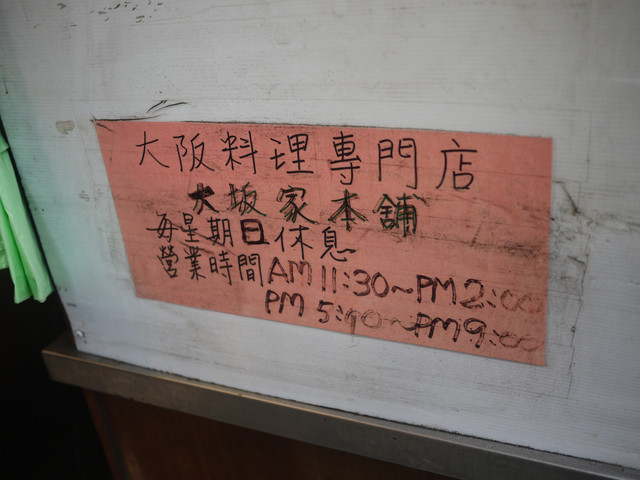 大阪料理專門店
大坂家本舖
每星期日休息
營業時間AM 11:30~PM 2:00
PM 5:00~PM 9:00